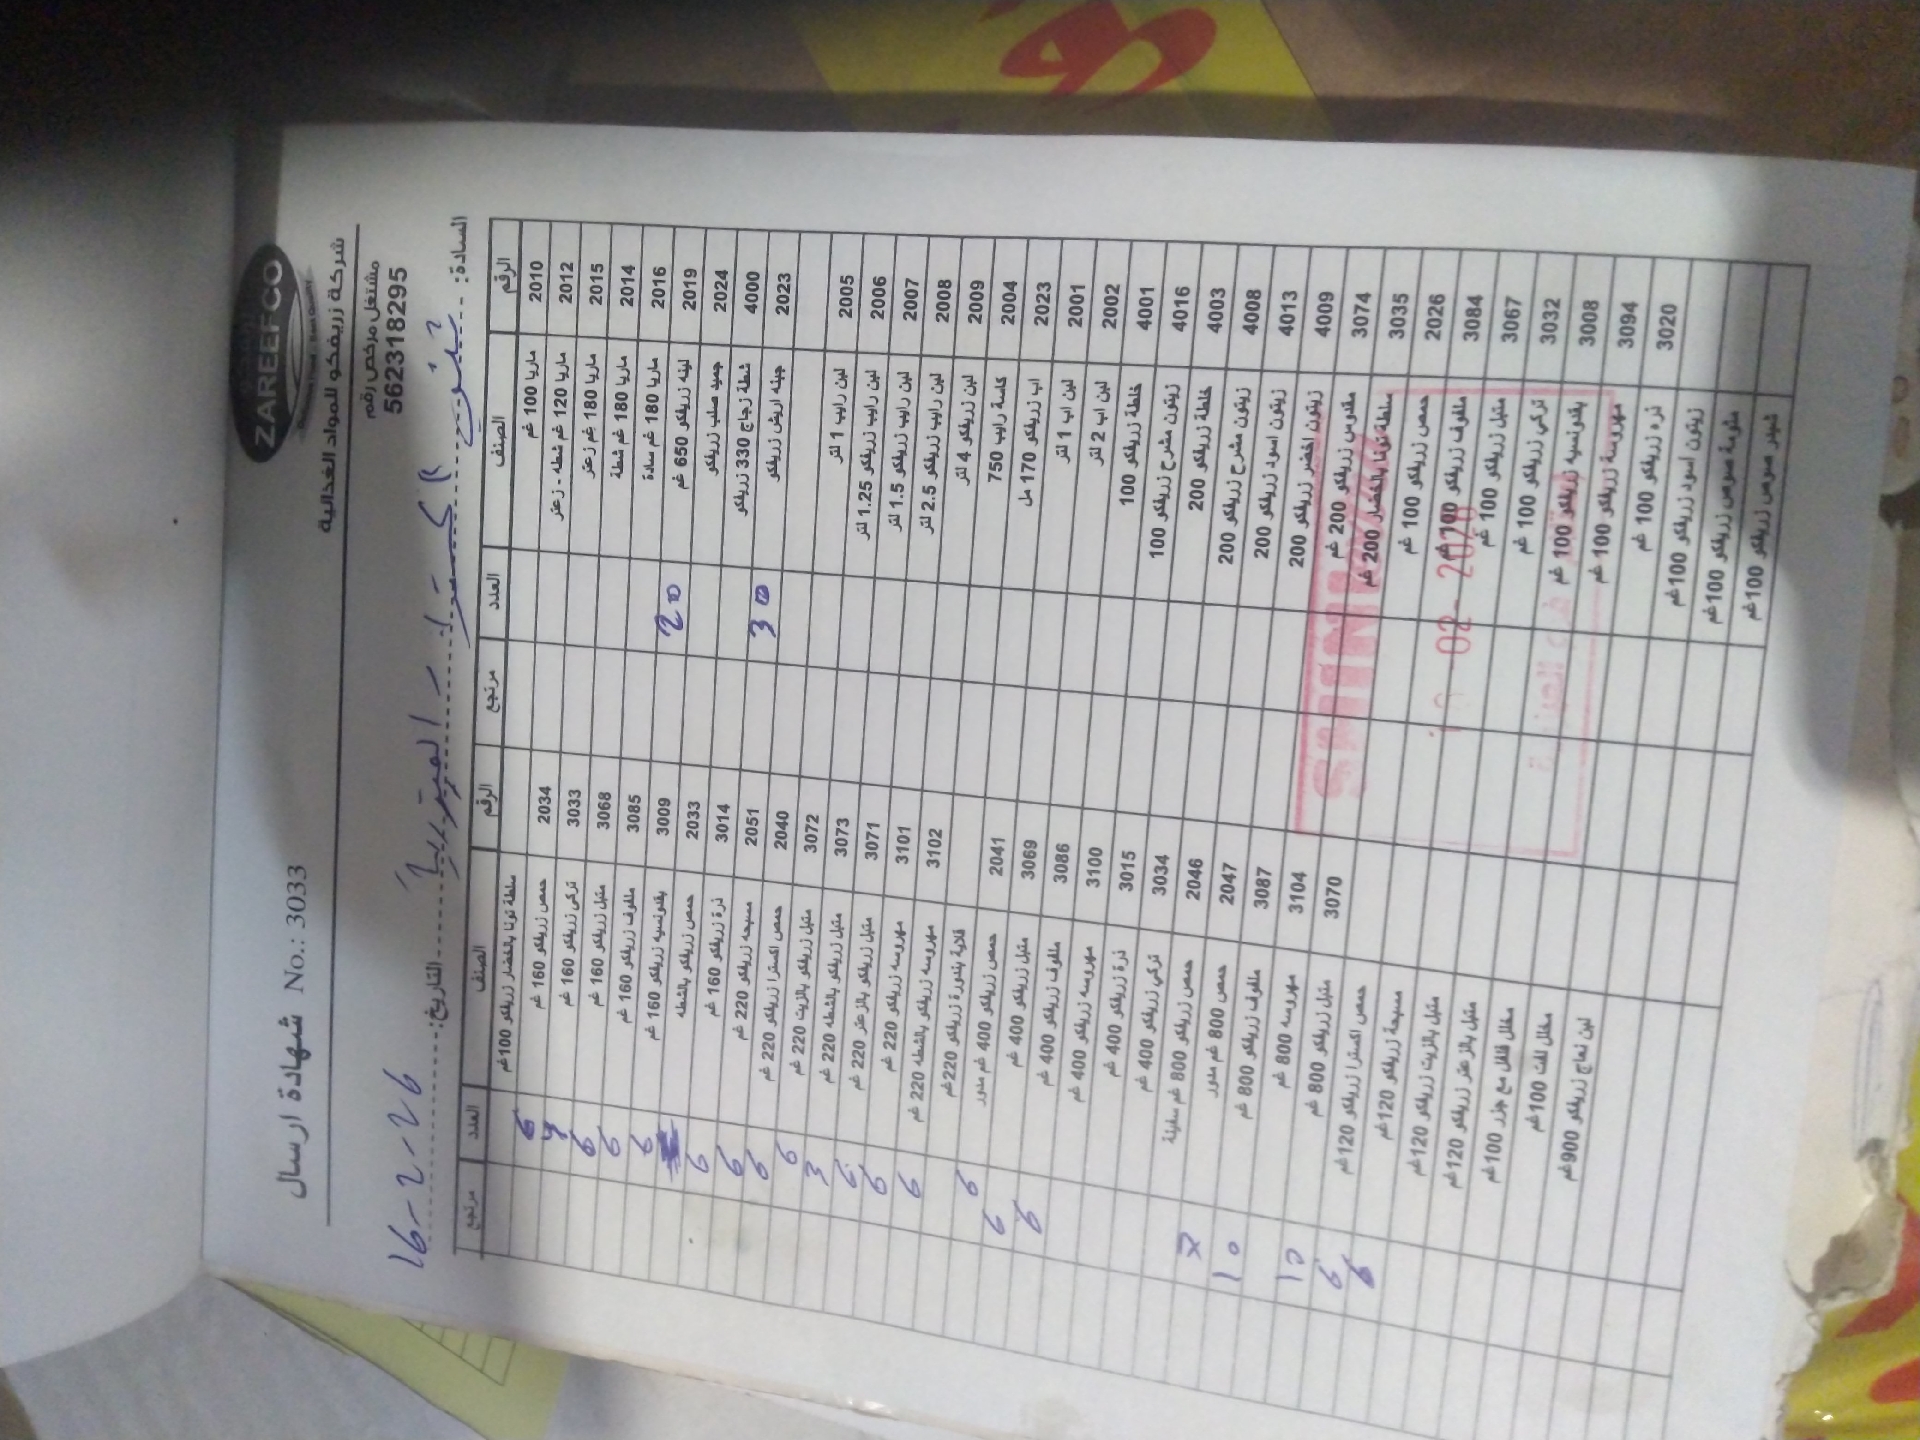 ZAREEFCO
شركة زريفكو للمواد الغذائية
شهادة ارسال No.: 3033
مشتغل مرخص رقم
562318295
السادة:
التاريخ: 16-2-26
الرقم الصنف العدد مرتجع الرقم الصنف العدد مرتجع
2010 ماريا 100 غم
2012 ماريا 120 غم شطه - زعتر
2015 ماريا 180 غم زعتر
2014 ماريا 180 غم شطة
2016 ماريا 180 غم سادة
2019 لبنه زريفكو 650 غم 20
2024 جميد صلب زريفكو
4000 شطة زجاج 330 زريفكو 30
2023 جبنه اريش زريفكو
2005 لبن رايب 1 لتر
2006 لبن رايب زريفكو 1.25 لتر
2007 لبن رايب زريفكو 1.5 لتر
2008 لبن رايب زريفكو 2.5 لتر
2009 لبن زريفكو 4 لتر
2004 كاسة رايب 750
2023 اب زريفكو 170 مل
2001 لبن اب 1 لتر
2002 لبن اب 2 لتر
4001 خلطة زريفكو 100
4016 زيتون مشرح زريفكو 100
4003 خلطة زريفكو 200
4008 زيتون مشرح زريفكو 200
4013 زيتون اسود زريفكو 200
4009 زيتون اخضر زريفكو 200
3074 مقدوس زريفكو 200 غم
3035 سلطة تونا بالخضار 200 غم
2026 حمص زريفكو 100 غم
3084 ملفوف زريفكو 100 غم
3067 متبل زريفكو 100 غم
3032 تركي زريفكو 100 غم
3008 بقدونسيه زريفكو 100 غم
3094 مهروسة زريفكو 100 غم
3020 ذره زريفكو 100 غم
زيتون اسود زريفكو 100غم
مثومة صوص زريفكو 100غم
شمندر صوص زريفكو 100غم
سلطة تونا بالخضار زريفكو 100غم
2034 حمص زريفكو 160 غم
3033 تركي زريفكو 160 غم
3068 متبل زريفكو 160 غم
3085 ملفوف زريفكو 160 غم
3009 بقدونسيه زريفكو 160 غم
2033 حمص زريفكو بالشطه
3014 ذرة زريفكو 160 غم
2051 مسبحه زريفكو 220 غم
2040 حمص اكسترا زريفكو 220 غم
3072 متبل زريفكو بالزيت 220 غم
3073 متبل زريفكو بالشطه 220 غم
3071 متبل زريفكو بالزعتر 220 غم
3101 مهروسه زريفكو 220 غم
3102 مهروسه زريفكو بالشطه 220 غم
قلاية بندورة زريفكو 220غم
2041 حمص زريفكو 400 غم مدور
3069 متبل زريفكو 400 غم
3086 ملفوف زريفكو 400 غم
3100 مهروسه زريفكو 400 غم
3015 ذرة زريفكو 400 غم
3034 تركي زريفكو 400 غم
2046 حمص زريفكو 800 غم سفينة
2047 حمص 800 غم مدور 10
3087 ملفوف زريفكو 800 غم
3104 مهروسه 800 غم
3070 متبل زريفكو 800 غم
حمص اكسترا زريفكو 120غم
مسبحة زريفكو 120غم
متبل بالزيت زريفكو 120غم
متبل بالزعتر زريفكو 120غم
مخلل فلفل مع جزر 100غم
مخلل لفت 100غم
لبن نعاج زريفكو 900غم